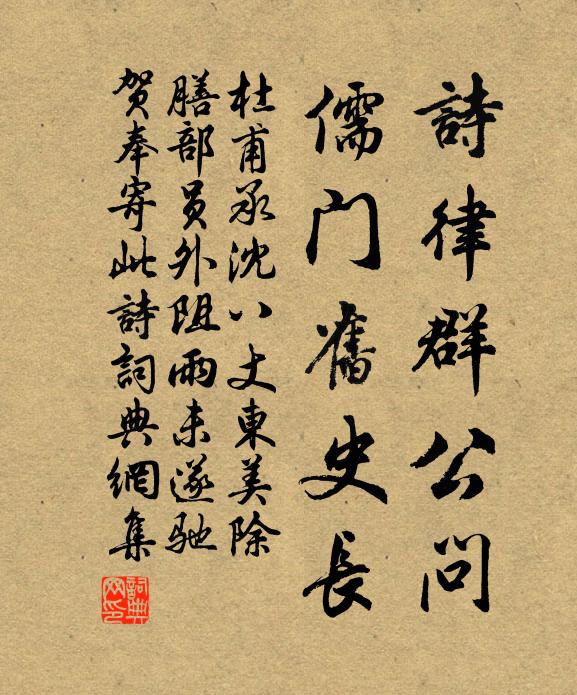 詩律群公問
儒門舊史長
杜甫承沈八丈東美除
膳部員外阻雨未遂馳
贺奉寄此詩詞典網集
詞典
网印